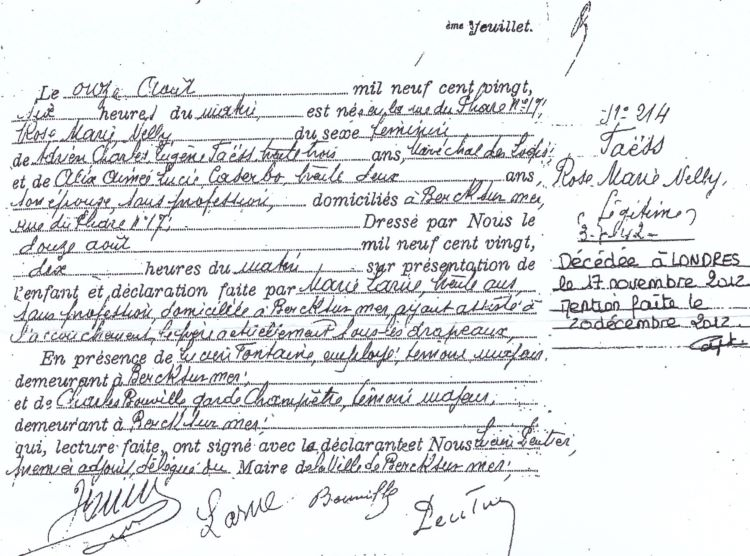 ème Feuillet.
Le onze Août mil neuf cent vingt,
six heures du matin, est née, rue du Phare N° 17,
Rose Marie Nelly du sexe féminin
de Adrien Charles Eugène Taëss trente trois ans, Maréchal des Logis,
et de Lucie Caserbo, trente deux ans,
son épouse, sans profession, domiciliés à Berck sur mer,
rue du Phare N° 17, Dressé par Nous le
douze août mil neuf cent vingt,
dix heures du matin sur présentation de
l'enfant et déclaration faite par Marie Larue, trente ans,
sans profession, domiciliée à Berck sur mer, ayant assisté à
l'accouchement, le père actuellement sous les drapeaux,
En présence de Fontaine, employé, témoin majeur,
demeurant à Berck sur mer,
et de Charles Bouville garde Champêtre, témoin majeur,
demeurant à Berck sur mer,
qui, lecture faite, ont signé avec la déclarante et Nous
premier adjoint, délégué du Maire de la Ville de Berck sur mer,
Larue Bouville
N° 214
Taëss
Rose Marie Nelly,
Légitime
Décédée à LONDRES
le 17 novembre 2012
Mention faite le
20 décembre 2012